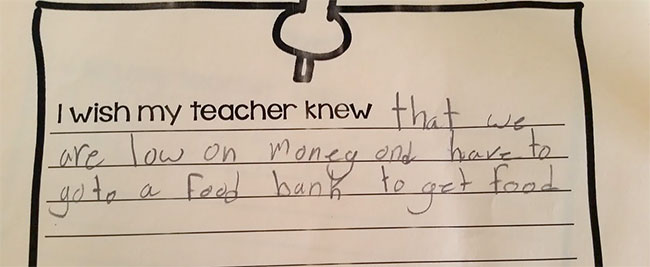 I wish my teacher knew that we
are low on money and have to
go to a food bank to get food